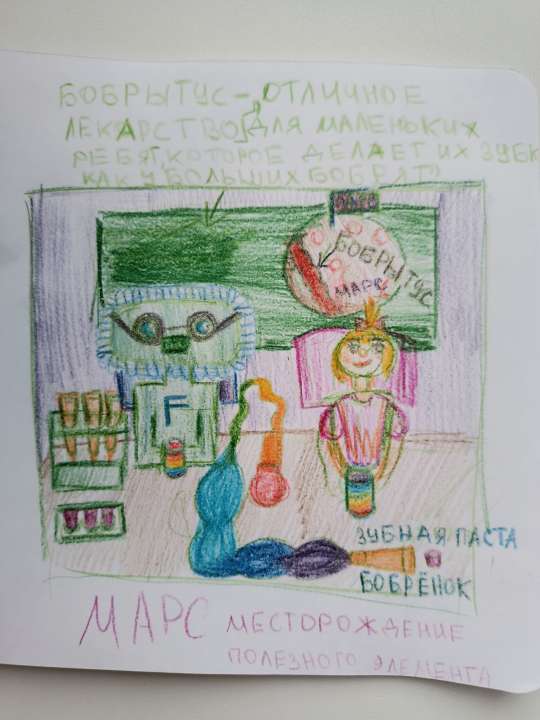 БОБРЫТУС - ОТЛИЧНОЕ
ЛЕКАРСТВО ДЛЯ МАЛЕНЬКИХ
РЕБЯТ, КОТОРОЕ ДЕЛАЕТ ИХ ЗУБК
КАК У БОЛЬШИХ БОБРЯТ
БОБРЫТУС
МАРС
F
ЗУБНАЯ ПАСТА
БОБРЁНОК
МАРС МЕСТОРОЖДЕНИЕ
ПОЛЕЗНОГО ЭЛЕМЕНТА